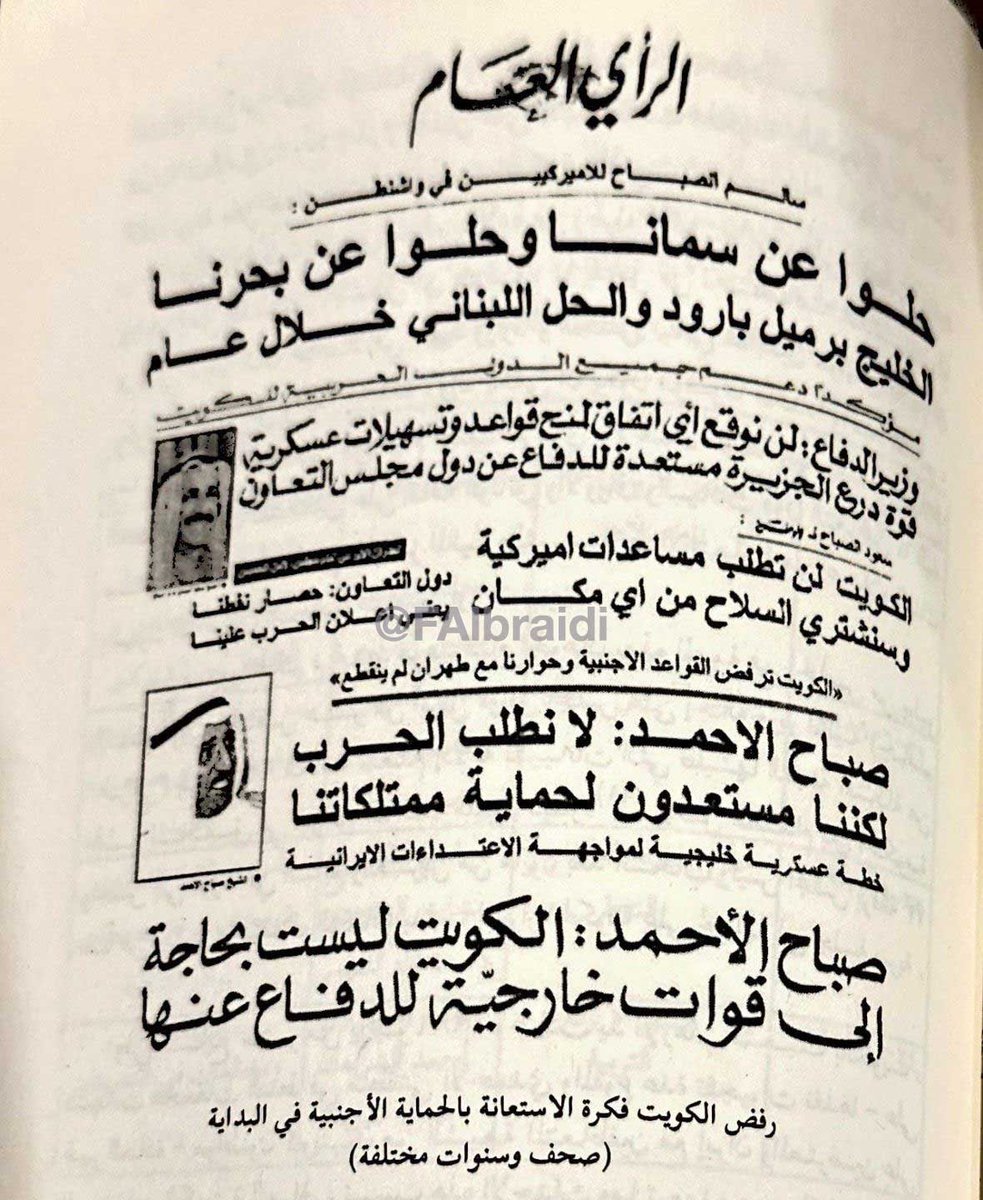 الرأي العام
سالم الصباح للاميركيين في واشنطن :
حلوا عن سمانا وحلوا عن بحرنا
الخليج برميل بارود والحل اللبناني خلال عام
مؤكدا دعم جميع الدول العربية للكويت
وزير الدفاع : لن نوقع أي اتفاق لمنح قواعد وتسهيلات عسكرية
قوة درع الجزيرة مستعدة للدفاع عن دول مجلس التعاون
سعود الصباح لـ :
الكويت لن تطلب مساعدات اميركية
وسنشتري السلاح من اي مكان
دول التعاون: حصار نفطنا
يعني إعلان الحرب علينا
@FAlbraidi
«الكويت ترفض القواعد الاجنبية وحوارنا مع طهران لم ينقطع»
صباح الاحمد: لا نطلب الحرب
لكننا مستعدون لحماية ممتلكاتنا
خطة عسكرية خليجية لمواجهة الاعتداءات الايرانية
• الشيخ صباح الاحمد
صباح الأحمد : الكويت ليست بحاجة
إلى قوات خارجيّة للدفاع عنها
رفض الكويت فكرة الاستعانة بالحماية الأجنبية في البداية
(صحف وسنوات مختلفة)